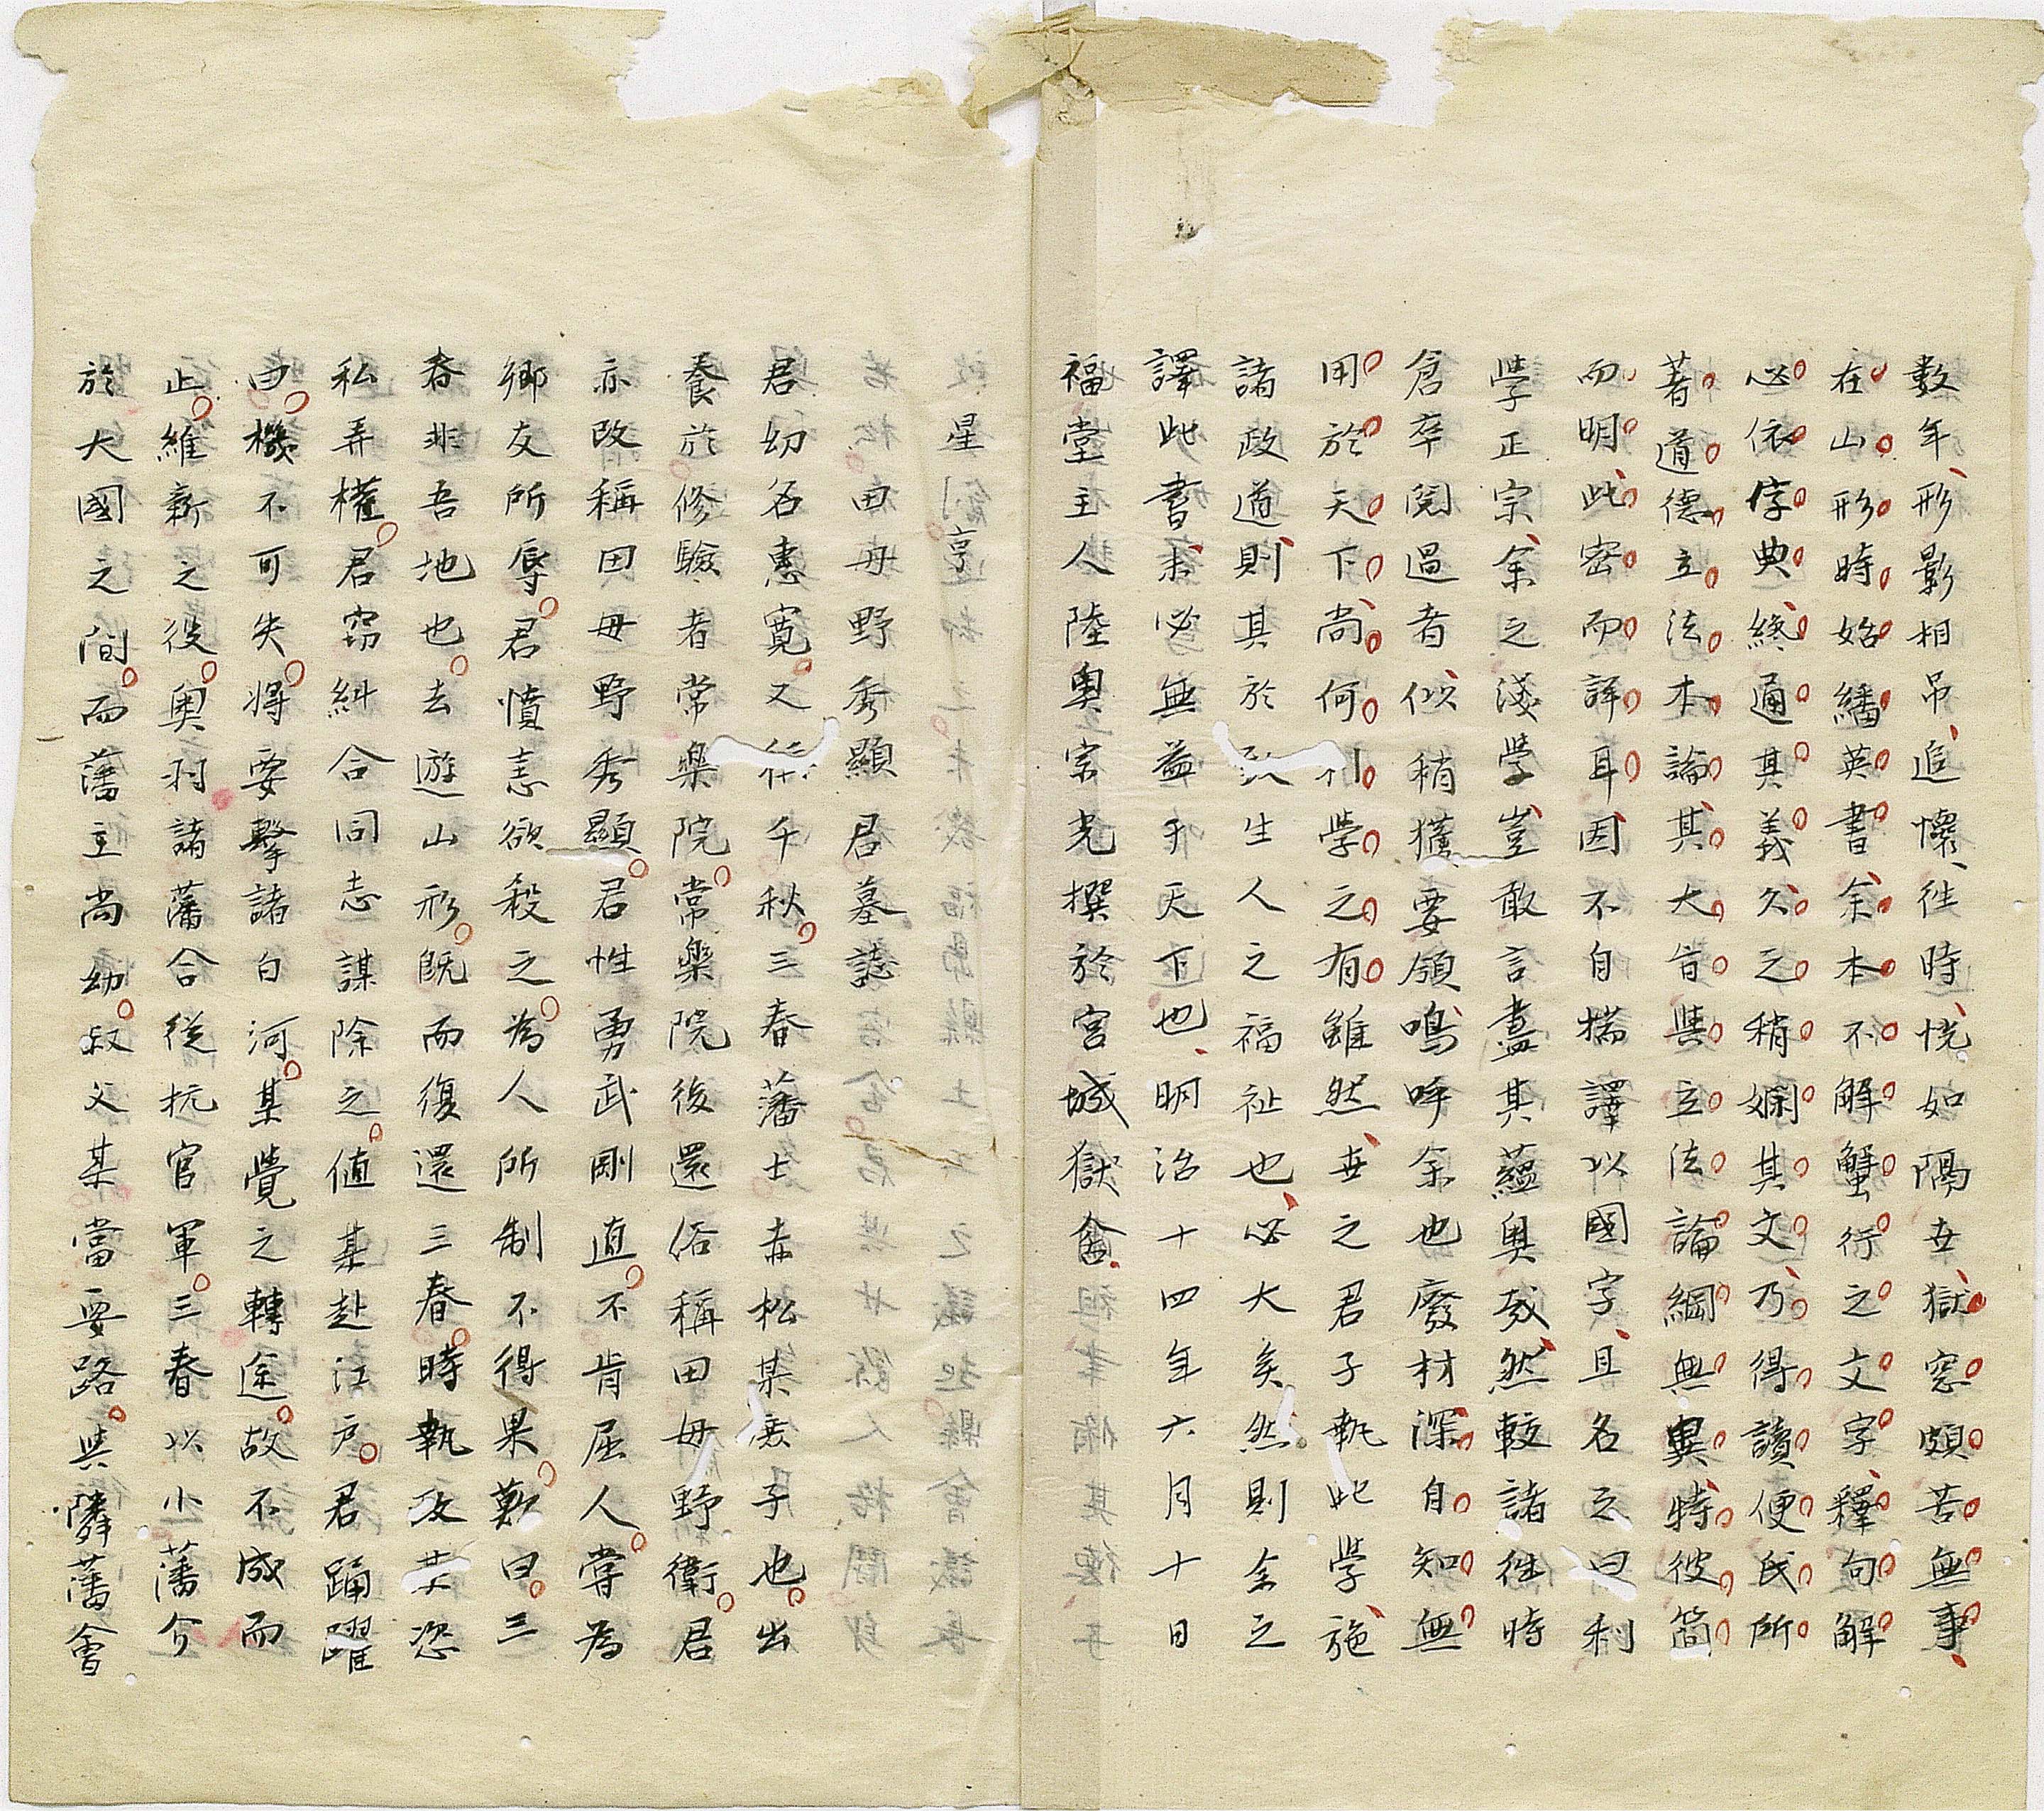 數年、形影相吊、追懷、往時、恍如隔世、獄窓頗苦無事、
在山形時始繙英書、余本不解蟹行之文字、釋句解
必依字典、終通其義、久之稍嫻其文、乃得讀便氏所
著道德立法、本論其大旨與立法論綱無異、特彼簡
而明、此密而詳耳、因不自揣譯以國字、且名之曰利
學正宗、余之淺學豈敢言盡其蘊奧哉、然較諸往時
倉卒閲過者似稍獲要領、嗚呼余也廢材深自知無
用於天下、尚何利學之有、雖然、世之君子執此學、施
諸政道、則其於致生人之福祉也、必大矣、然則余之
譯此書、未必無益于天下也、明治十四年六月十日
福堂主人陸奥宗光撰於宮城獄舍、
星亨
田母野秀顯君墓誌
君幼名憲寛。又稱千秋。三春藩士赤松某庶子也。出
養於修驗者常樂院。常樂院後還俗稱田母野衛。君
亦改稱田母野秀顯。君性勇武剛直。不肯屈人。嘗為
鄉友所辱。君憤恚欲殺之。為人所制不得果。歎曰。三
春非吾地也。去遊山形。既而復還三春。時執政某恣
私弄權。君窃糾合同志謀除之。値某赴江戸。君踊躍
曰。機不可失。將要擊諸白河。某覺之轉途。故不成而
止。維新之役。奥羽諸藩合從抗官軍。三春以小藩介
於大國之間。而藩主尚幼。叔父某當要路。與隣藩會